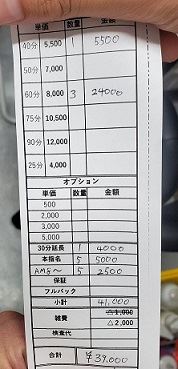 単価 数量 金額
40分 5,500 1 5500
50分 7,000
60分 8,000 3 24000
75分 10,500
90分 12,000
25分 4,000
オプション
単価 数量 金額
500
2,000
3,000
5,000
30分延長 1 4000
本指名 5 5000
AM5〜 5 2500
保証
フルバック
小計 41,000
雑費 △1,000
△2,000
検査代
合計 ¥39,000